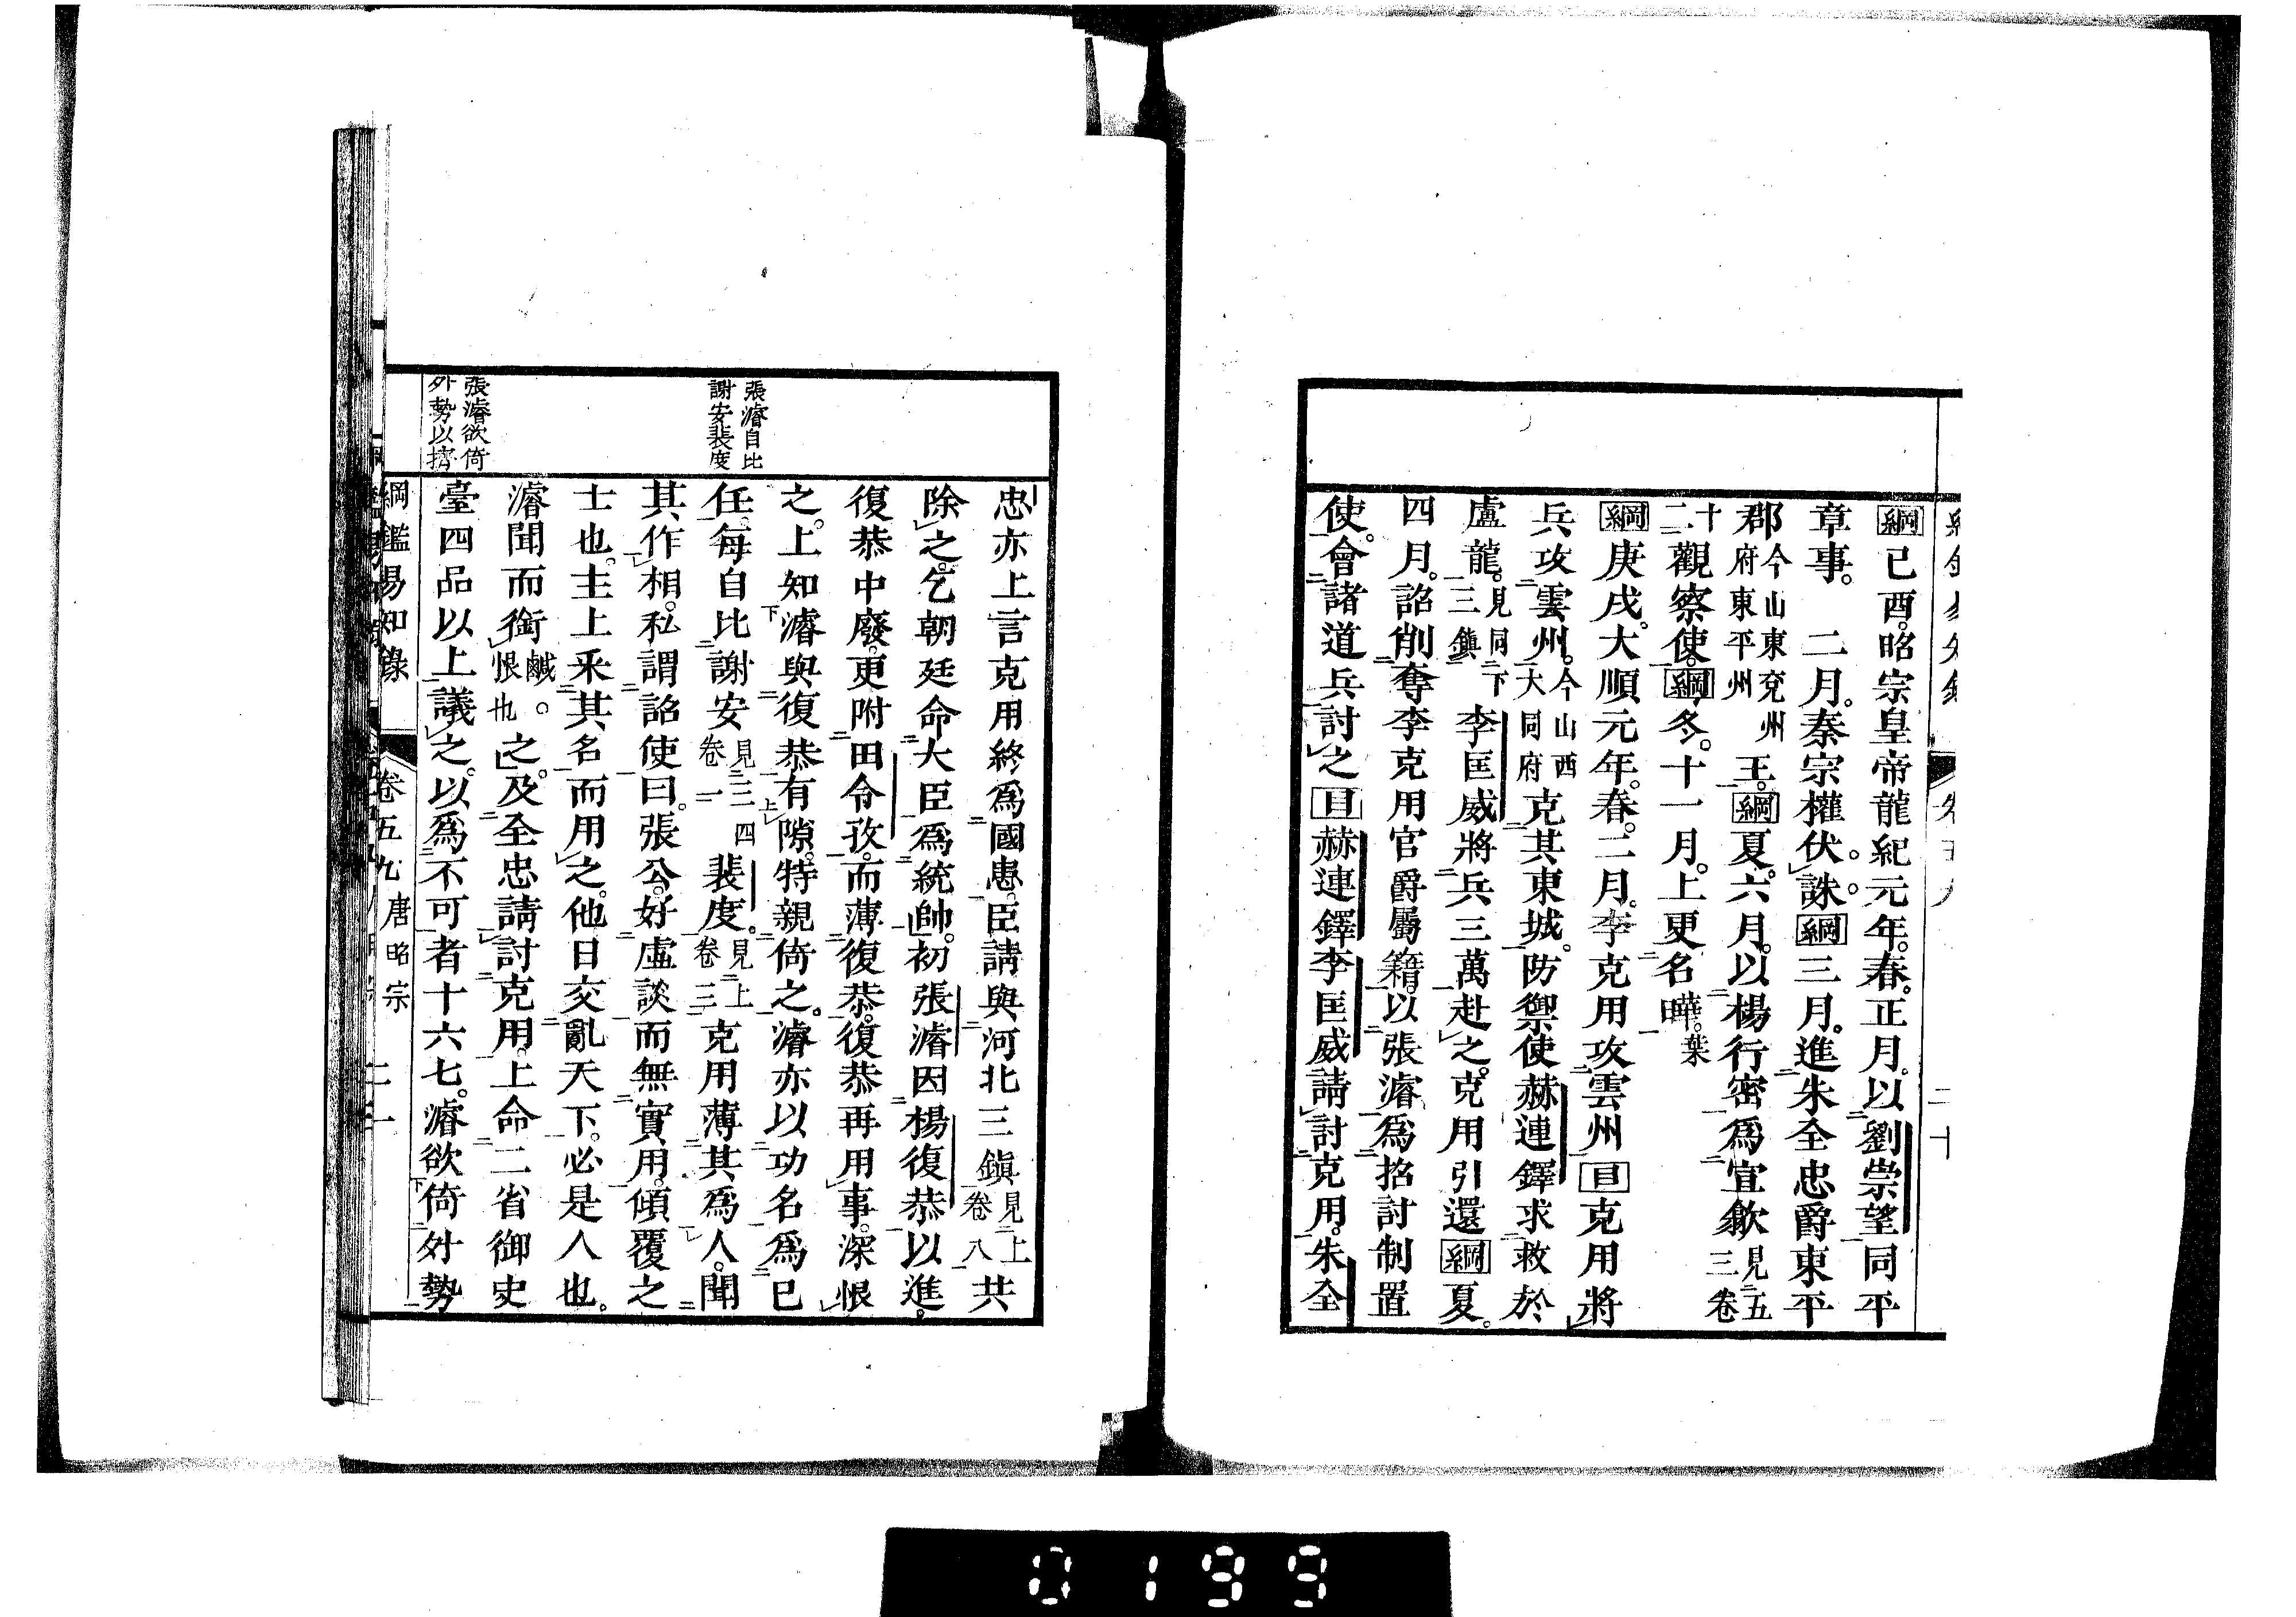 綱己酉。昭宗皇帝龍紀元年。春。正月。以劉崇望同平
章事。 二月。秦宗權伏。誅。綱三月。進朱全忠爵東平
郡今山東兗州府東平州王。綱夏。六月。以楊行密爲宣歙見五三卷
十二觀察使。綱冬。十一月。上更名曄。葉
綱庚戌。大順元年。春。二月。李克用攻雲州目克用將
兵攻雲州。今山西大同府克其東城。防禦使赫連鐸求救於
盧龍。見同下三鎭李匡威將兵三萬赴之。克用引還綱夏。
四月。詔削奪李克用官爵屬籍。以張濬爲招討制置
使。會諸道兵討之目赫連鐸李匡威請討克用。朱全
張濬自比
謝安裴度
張濬欲倚
外勢以擠
忠亦上言克用終爲國患。臣請與河北三鎭見上卷八共
除之。乞朝廷命大臣爲統帥。初張濬因楊復恭以進。
復恭中廢。更附田令孜。而薄復恭。復恭再用事。深恨
之。上知濬與復恭有隙。特親倚之。濬亦以功名爲己
任。每自比謝安見三四卷一裴度。見上卷三克用薄其爲人。聞
其作相。私謂詔使曰。張公好虛談而無實用。傾覆之
士也。主上釆其名而用之。他日交亂天下。必是人也。
濬聞而銜鹹。恨也之。及全忠請討克用。上命二省御史
臺四品以上議之。以爲不可者十六七。濬欲倚外勢
綱鑑易知錄 卷五九 唐昭宗 二十一
0199